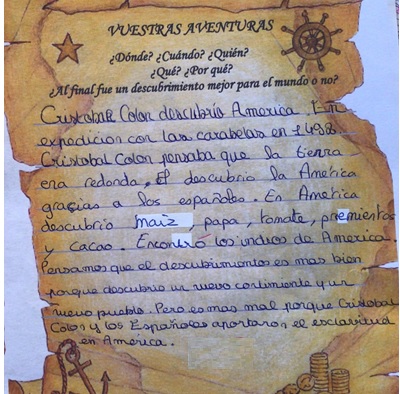 VUESTRAS AVENTURAS
¿Dónde? ¿Cuándo? ¿Quién?
¿Qué? ¿Por qué?
¿Al final fue un descubrimiento mejor para el mundo o no?
Cristobal Colon descubrió America. En
expedicion con las carabelas en 1498
Cristobal Colon pensaba que la tierra
era redonda. El descubrio la America
gracias a los españoles. En America
descubrio maiz, papa, tomate, priemientos
y cacao. Encontró los indios de America.
Pensamos que el descubrimientos es mas bien
porque descubrio un nuevo continente y un
nuevo pueblo. Pero es mas mal porque Cristobal
Colon y los Españoles aportaron el esclavitud
en America.